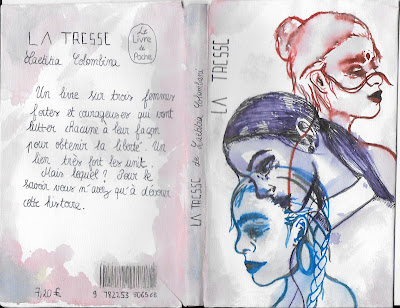 LA TRESSE
Laetitia Colombina
Le
Livre
de
Poche
Un livre sur trois femmes
fortes et courageuses qui vont
lutter chacune à leur façon
pour obtenir la liberté. Un
lien très fort les unit.
Mais lequel ? Pour le
savoir vous n'avez qu'à dévorer
cette histoire.
7,20€
LA TRESSE de Laetitia Colombani
LA TRESSE